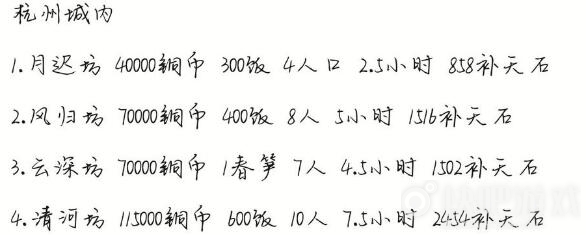 杭州城内
1.月迟坊 40000铜币 300饭 4人口 2.5小时 858补天石
2.风归坊 70000铜币 400饭 8人 5小时 1516补天石
3.云深坊 70000铜币 1春笋 7人 4.5小时 1502补天石
4.清河坊 115000铜币 600饭 10人 7.5小时 2454补天石